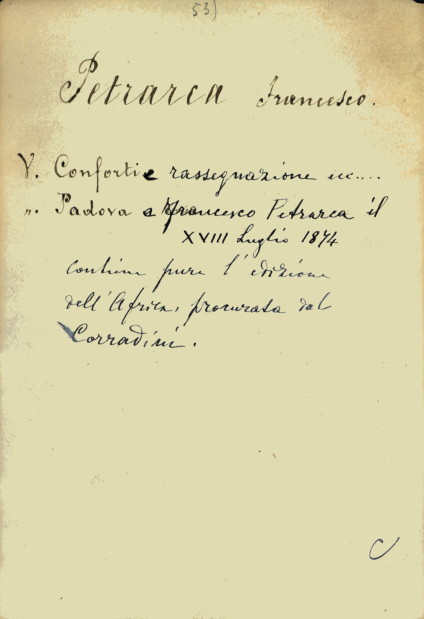 53)
Petrarca Francesco.
V. Conforti e rassegnazione ecc....
„. Padova a Francesco Petrarca il
XVIII Luglio 1874
contiene pure l'edizione
dell'Africa, procurata dal
Corradini.
C